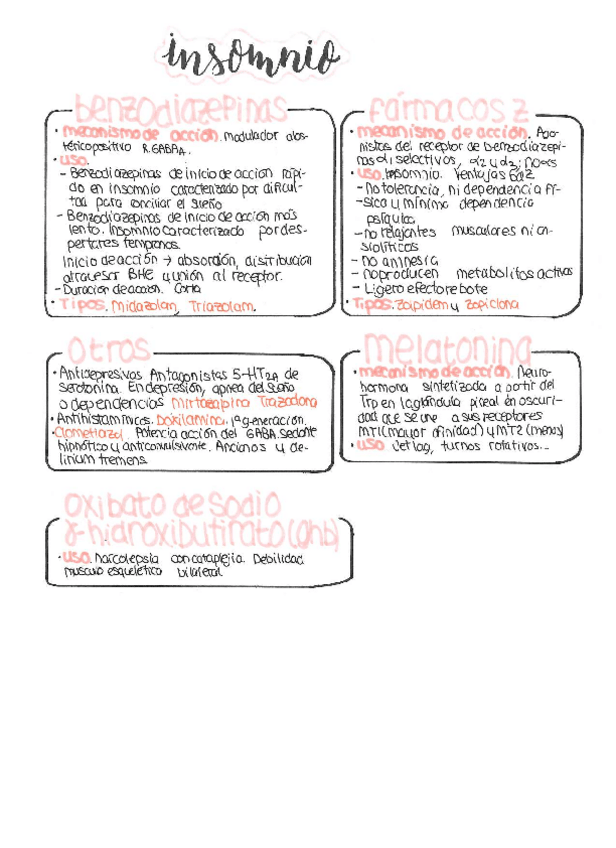 insomnio
benzodiazepinas
· mecanismo de acción. Modulador alos-
térico positivo R.GABAA.
· uso.
- Benzodiazepinas de inicio de acción rápi-
do en insomnio caracterizado por dificul-
tad para conciliar el sueño
- Benzodiazepinas de inicio de acción más
lento. Insomnio caracterizado por des-
pertares tempranos.
Inicio de acción → absorción, distribución
atravesar BHE y unión al receptor.
- Duración de acción. Corta
· Tipos. Midazolam, Triazolam.
fármacos z
· mecanismo de acción. Ago-
nistas del receptor de benzodiazepi-
nas
· uso. Insomnio. Ventajas BDZ
- No tolerancia, ni dependencia fí-
sica y mínima dependencia
psíquica
- no relajantes musculares ni an-
siolíticos
- no amnesia
- no producen metabolitos activos
- Ligero efecto rebote
· Tipos. Zolpidem y Zopiclona
otros
· Antidepresivos Antagonistas 5-HT2A de
serotonina. En depresión, apnea del sueño
o dependencias Mirtazapina Trazodona
· Antihistamínicos. Doxilamina. 1ª generación.
· Clometiazol. Potencia acción del GABA. sedante
hipnótico y anticonvulsivante. Ancianos y de-
lirium tremens.
melatonina
· mecanismo de acción. Neuro-
hormona sintetizada a partir del
Trp en la glándula pineal en oscuri-
dad que se une a sus receptores
MT1 (mayor afinidad) y MT2 (menos)
· uso Jet lag, turnos rotativos...
oxibato de sodio
γ-hidroxibutirato (ghb)
· uso. Narcolepsia con cataplejia. Debilidad
musculo esquelético bilateral